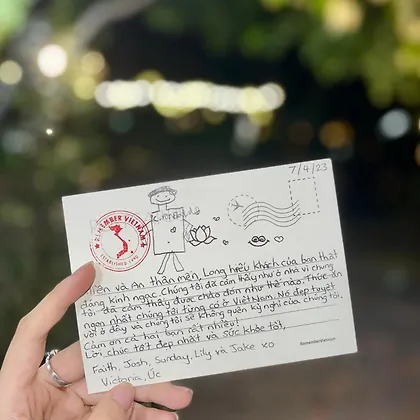 7/4/23
REMEMBER VIETNAM
ESTABLISHED
Hiền và An thân mến, Long hiếu khách của bạn thật
đáng kinh ngạc chúng tôi đã cảm thấy như ở nhà vì chúng
tôi đã cảm thấy được chào đón như thế nào. Thức ăn
ngon nhất chúng tôi từng có ở Việt Nam. Nó đẹp tuyệt
vời ở đây và chúng tôi sẽ không quên kỳ nghỉ của chúng tôi.
Cảm ơn cả hai bạn rất nhiều!
Lời chúc tốt đẹp nhất và sức khỏe tốt,
Faith, Josh, Sunday, Lily và Jake xo
Victoria, Úc
RememberVietnam